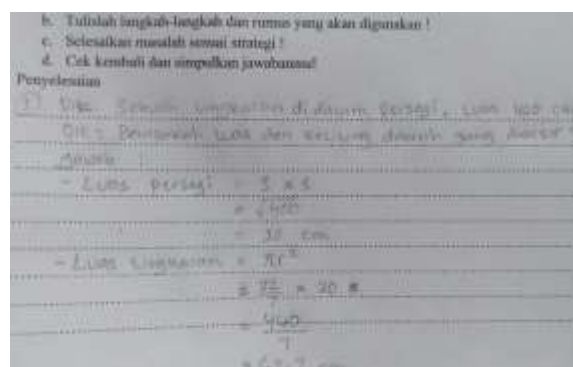 b. Tulislah langkah-langkah dan rumus yang akan digunakan !
c. Selesaikan masalah sesuai strategi !
d. Cek kembali dan simpulkan jawabanmu!
Penyelesaian
1) Dik : Sebuah lingkaran di dalam persegi, Luas 400 cm
Dit : Berapakah Luas dan keliling daerah yang diarsir ?
Jawab :
- Luas persegi = s x s
= √400
= 20 cm
- Luas Lingkaran = πr²
= 22/7 × 20
= 440/7